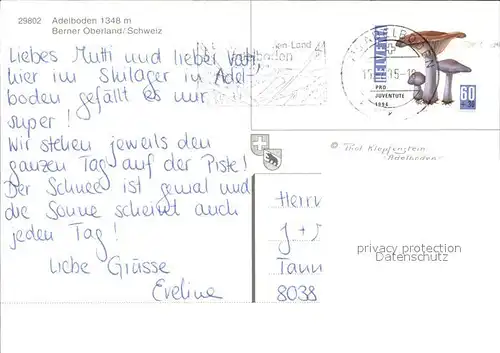 29802 Adelboden 1348 m
Berner Oberland/Schweiz
Liebes Mutti und lieber Vati,
hier im Skilager in Adel-
boden gefällt es mir
super!
Wir stehen jeweils den
ganzen Tag auf der Piste!
Der Schnee ist genial und
die Sonne scheint auch
jeden Tag!
Liebe Grüsse
Eveline
HELVETIA
PRO
JUVENTUTE
1994
60
© Thot Klopfenstein
Adelboden
Herrn
J +
Tann
8038
privacy protection
Datenschutz